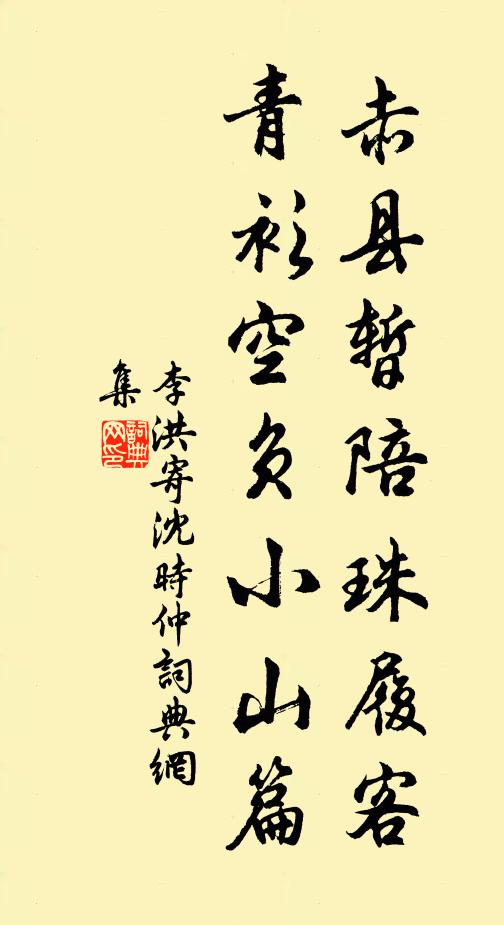 赤县暫陪珠履客
青衫空负小山篇
李洪寄沈時仲詞典網
集
詞典网印